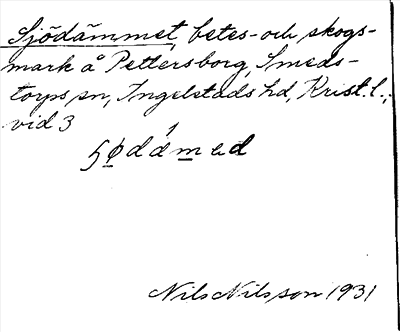 Sjödämmet, betes- och skogs-
mark å Pettersborg, Smeds-
torps sn, Ingelstads hd, Krist. l.;
vid 3
Nils Nilsson 1931